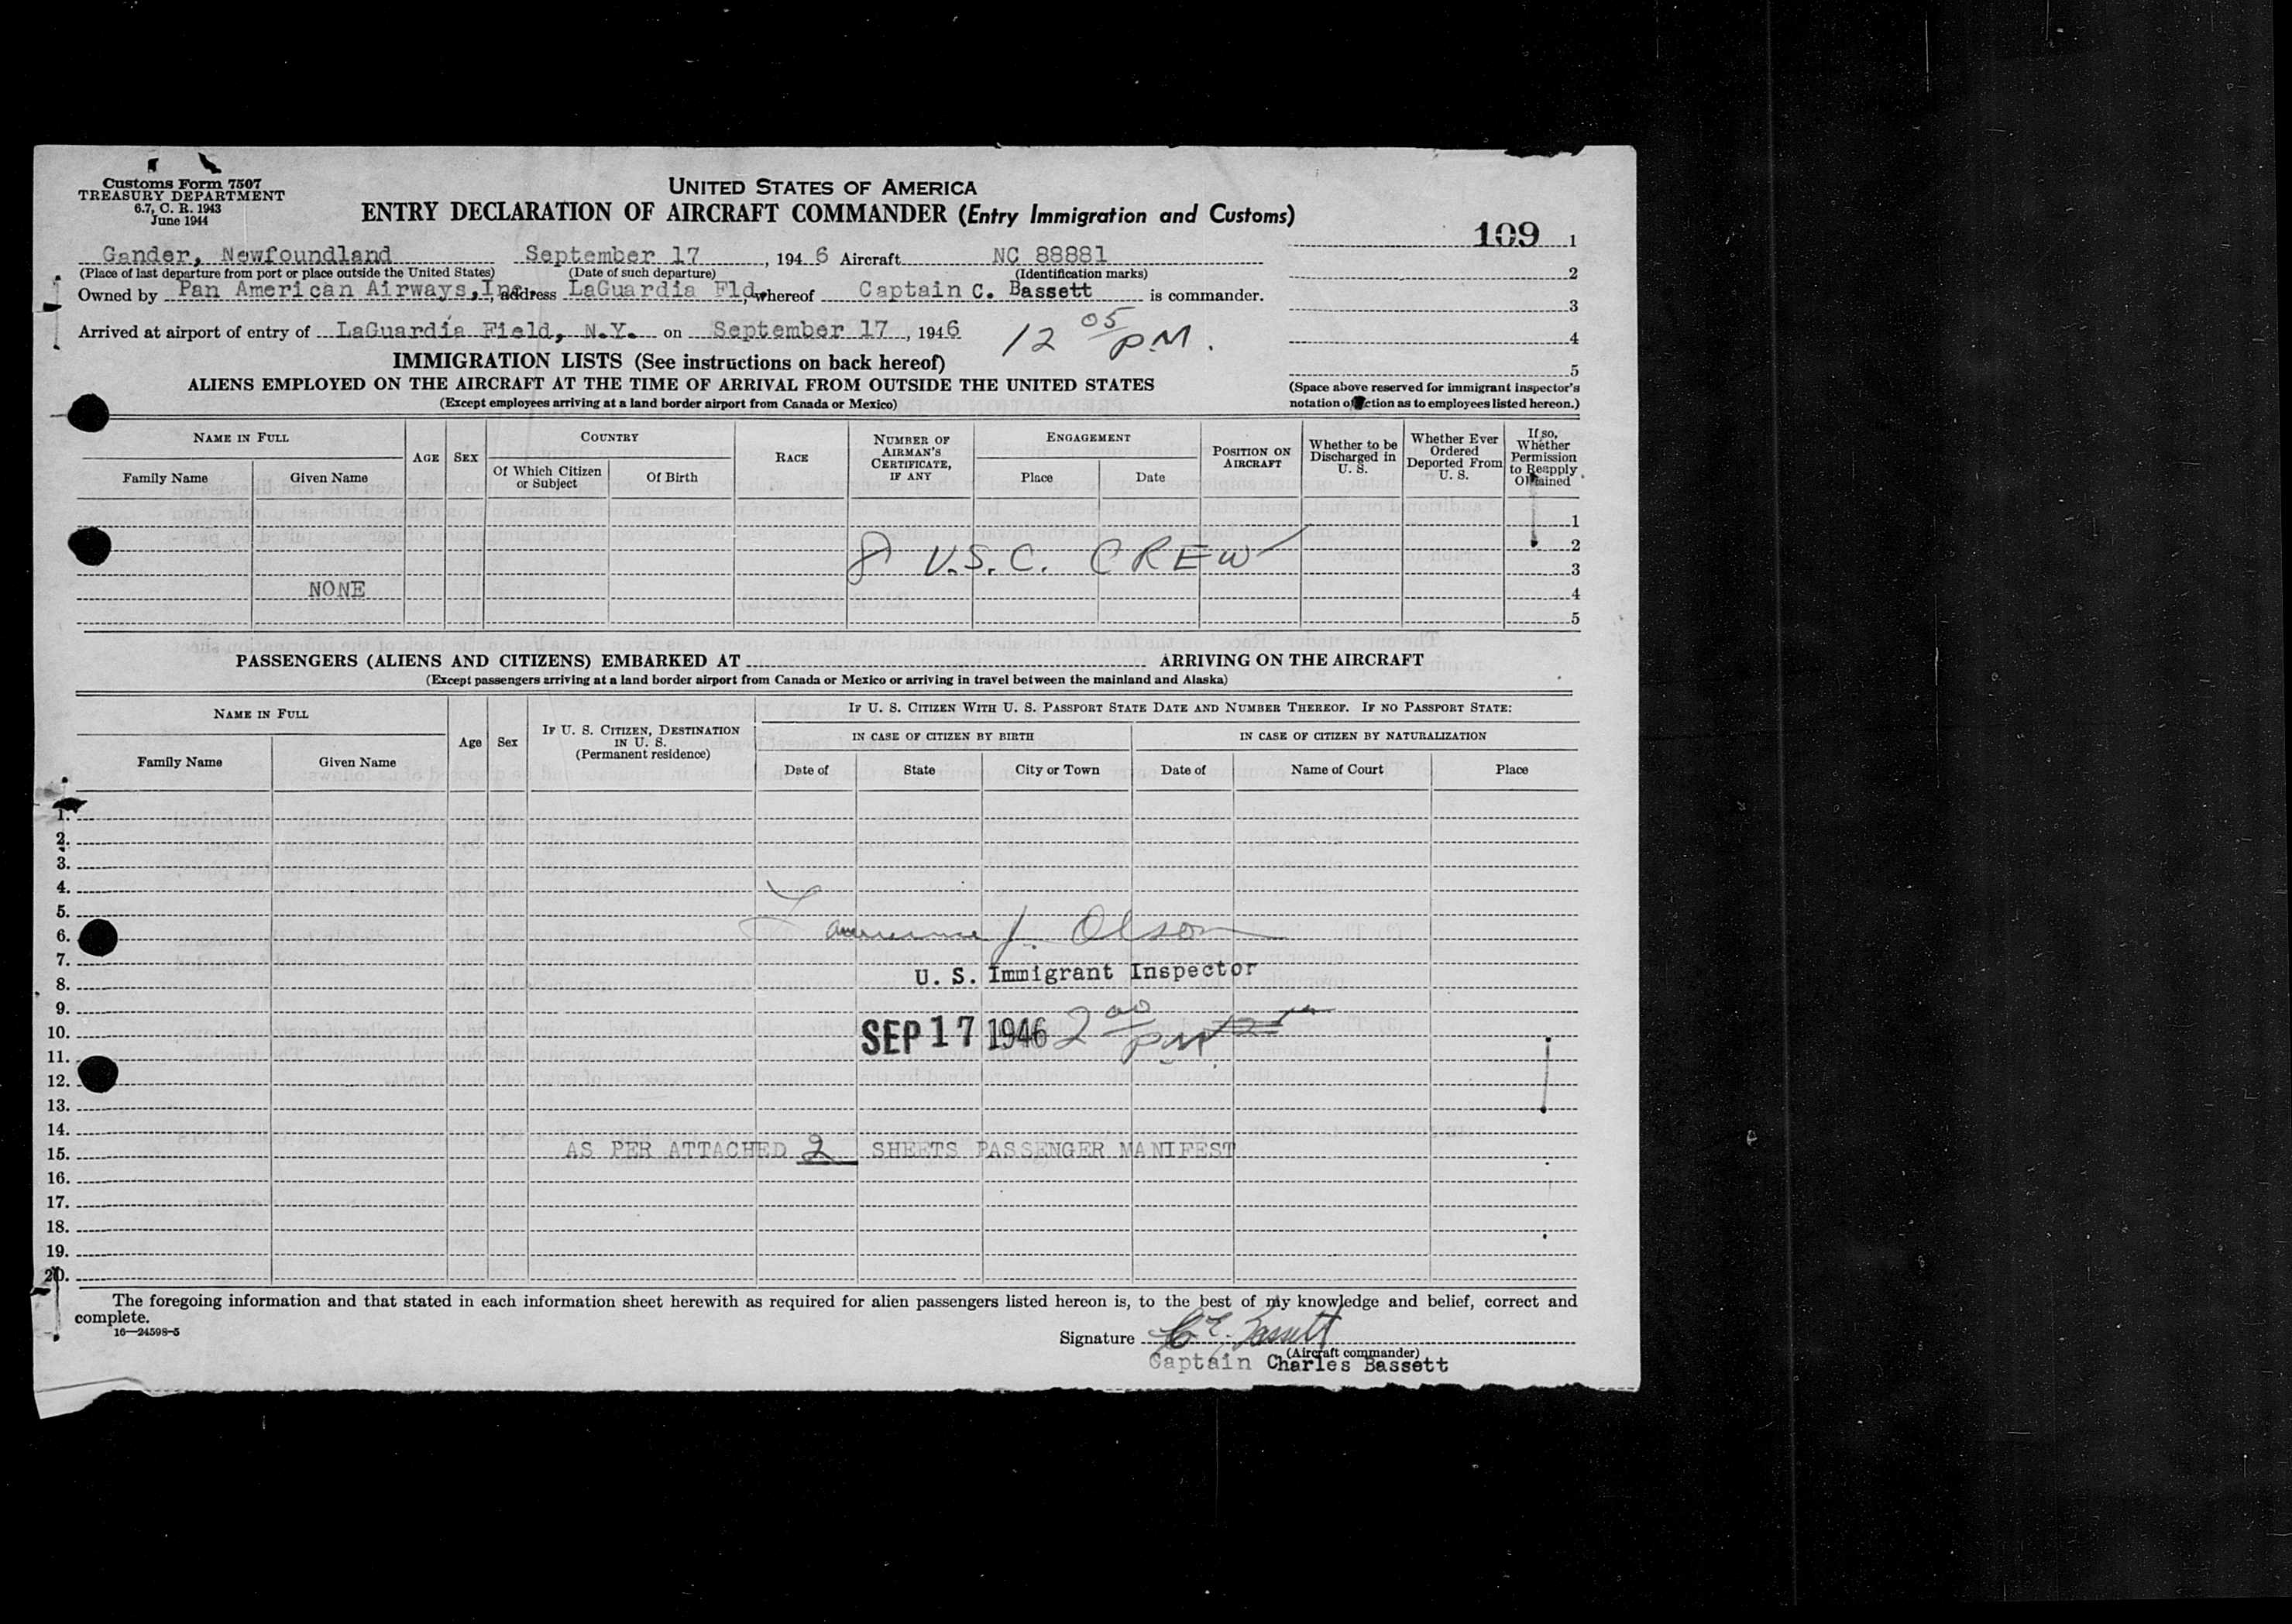 Customs Form 7507
TREASURY DEPARTMENT
6.7, C. R. 1943
June 1944
UNITED STATES OF AMERICA
ENTRY DECLARATION OF AIRCRAFT COMMANDER (Entry Immigration and Customs)
109 1
Gander, Newfoundland September 17, 1946 Aircraft NC 88881
(Place of last departure from port or place outside the United States) (Date of such departure) (Identification marks)
2
Owned by Pan American Airways, Inc, address LaGuardia Fld, whereof Captain C. Bassett is commander.
3
Arrived at airport of entry of LaGuardia Field, N.Y. on September 17, 1946 12 05 PM.
4
IMMIGRATION LISTS (See instructions on back hereof)
5
ALIENS EMPLOYED ON THE AIRCRAFT AT THE TIME OF ARRIVAL FROM OUTSIDE THE UNITED STATES
(Except employees arriving at a land border airport from Canada or Mexico)
(Space above reserved for immigrant inspector's
notation of action as to employees listed hereon.)
NAME IN FULL
Family Name
Given Name
AGE
SEX
COUNTRY
Of Which Citizen
or Subject
Of Birth
RACE
NUMBER OF
AIRMAN'S
CERTIFICATE,
IF ANY
ENGAGEMENT
Place
Date
POSITION ON
AIRCRAFT
Whether to be
Discharged in
U. S.
Whether Ever
Ordered
Deported From
U. S.
If so,
Whether
Permission
to Reapply
Obtained
1
2
8 U.S.C. CREW
3
NONE
4
5
PASSENGERS (ALIENS AND CITIZENS) EMBARKED AT ARRIVING ON THE AIRCRAFT
(Except passengers arriving at a land border airport from Canada or Mexico or arriving in travel between the mainland and Alaska)
NAME IN FULL
Family Name
Given Name
Age
Sex
IF U. S. CITIZEN, DESTINATION
IN U. S.
(Permanent residence)
IF U. S. CITIZEN WITH U. S. PASSPORT STATE DATE AND NUMBER THEREOF. IF NO PASSPORT STATE:
IN CASE OF CITIZEN BY BIRTH
Date of
State
City or Town
IN CASE OF CITIZEN BY NATURALIZATION
Date of
Name of Court
Place
1.
2.
3.
4.
5.
6.
Lawrence J. Olson
7.
8.
U. S. Immigrant Inspector
9.
10.
SEP 17 1946 2 00 PM
11.
12.
13.
14.
15.
AS PER ATTACHED 2 SHEETS PASSENGER MANIFEST
16.
17.
18.
19.
20.
The foregoing information and that stated in each information sheet herewith as required for alien passengers listed hereon is, to the best of my knowledge and belief, correct and
complete.
16—24598-5
Signature C E. Bassett
(Aircraft commander)
Captain Charles Bassett